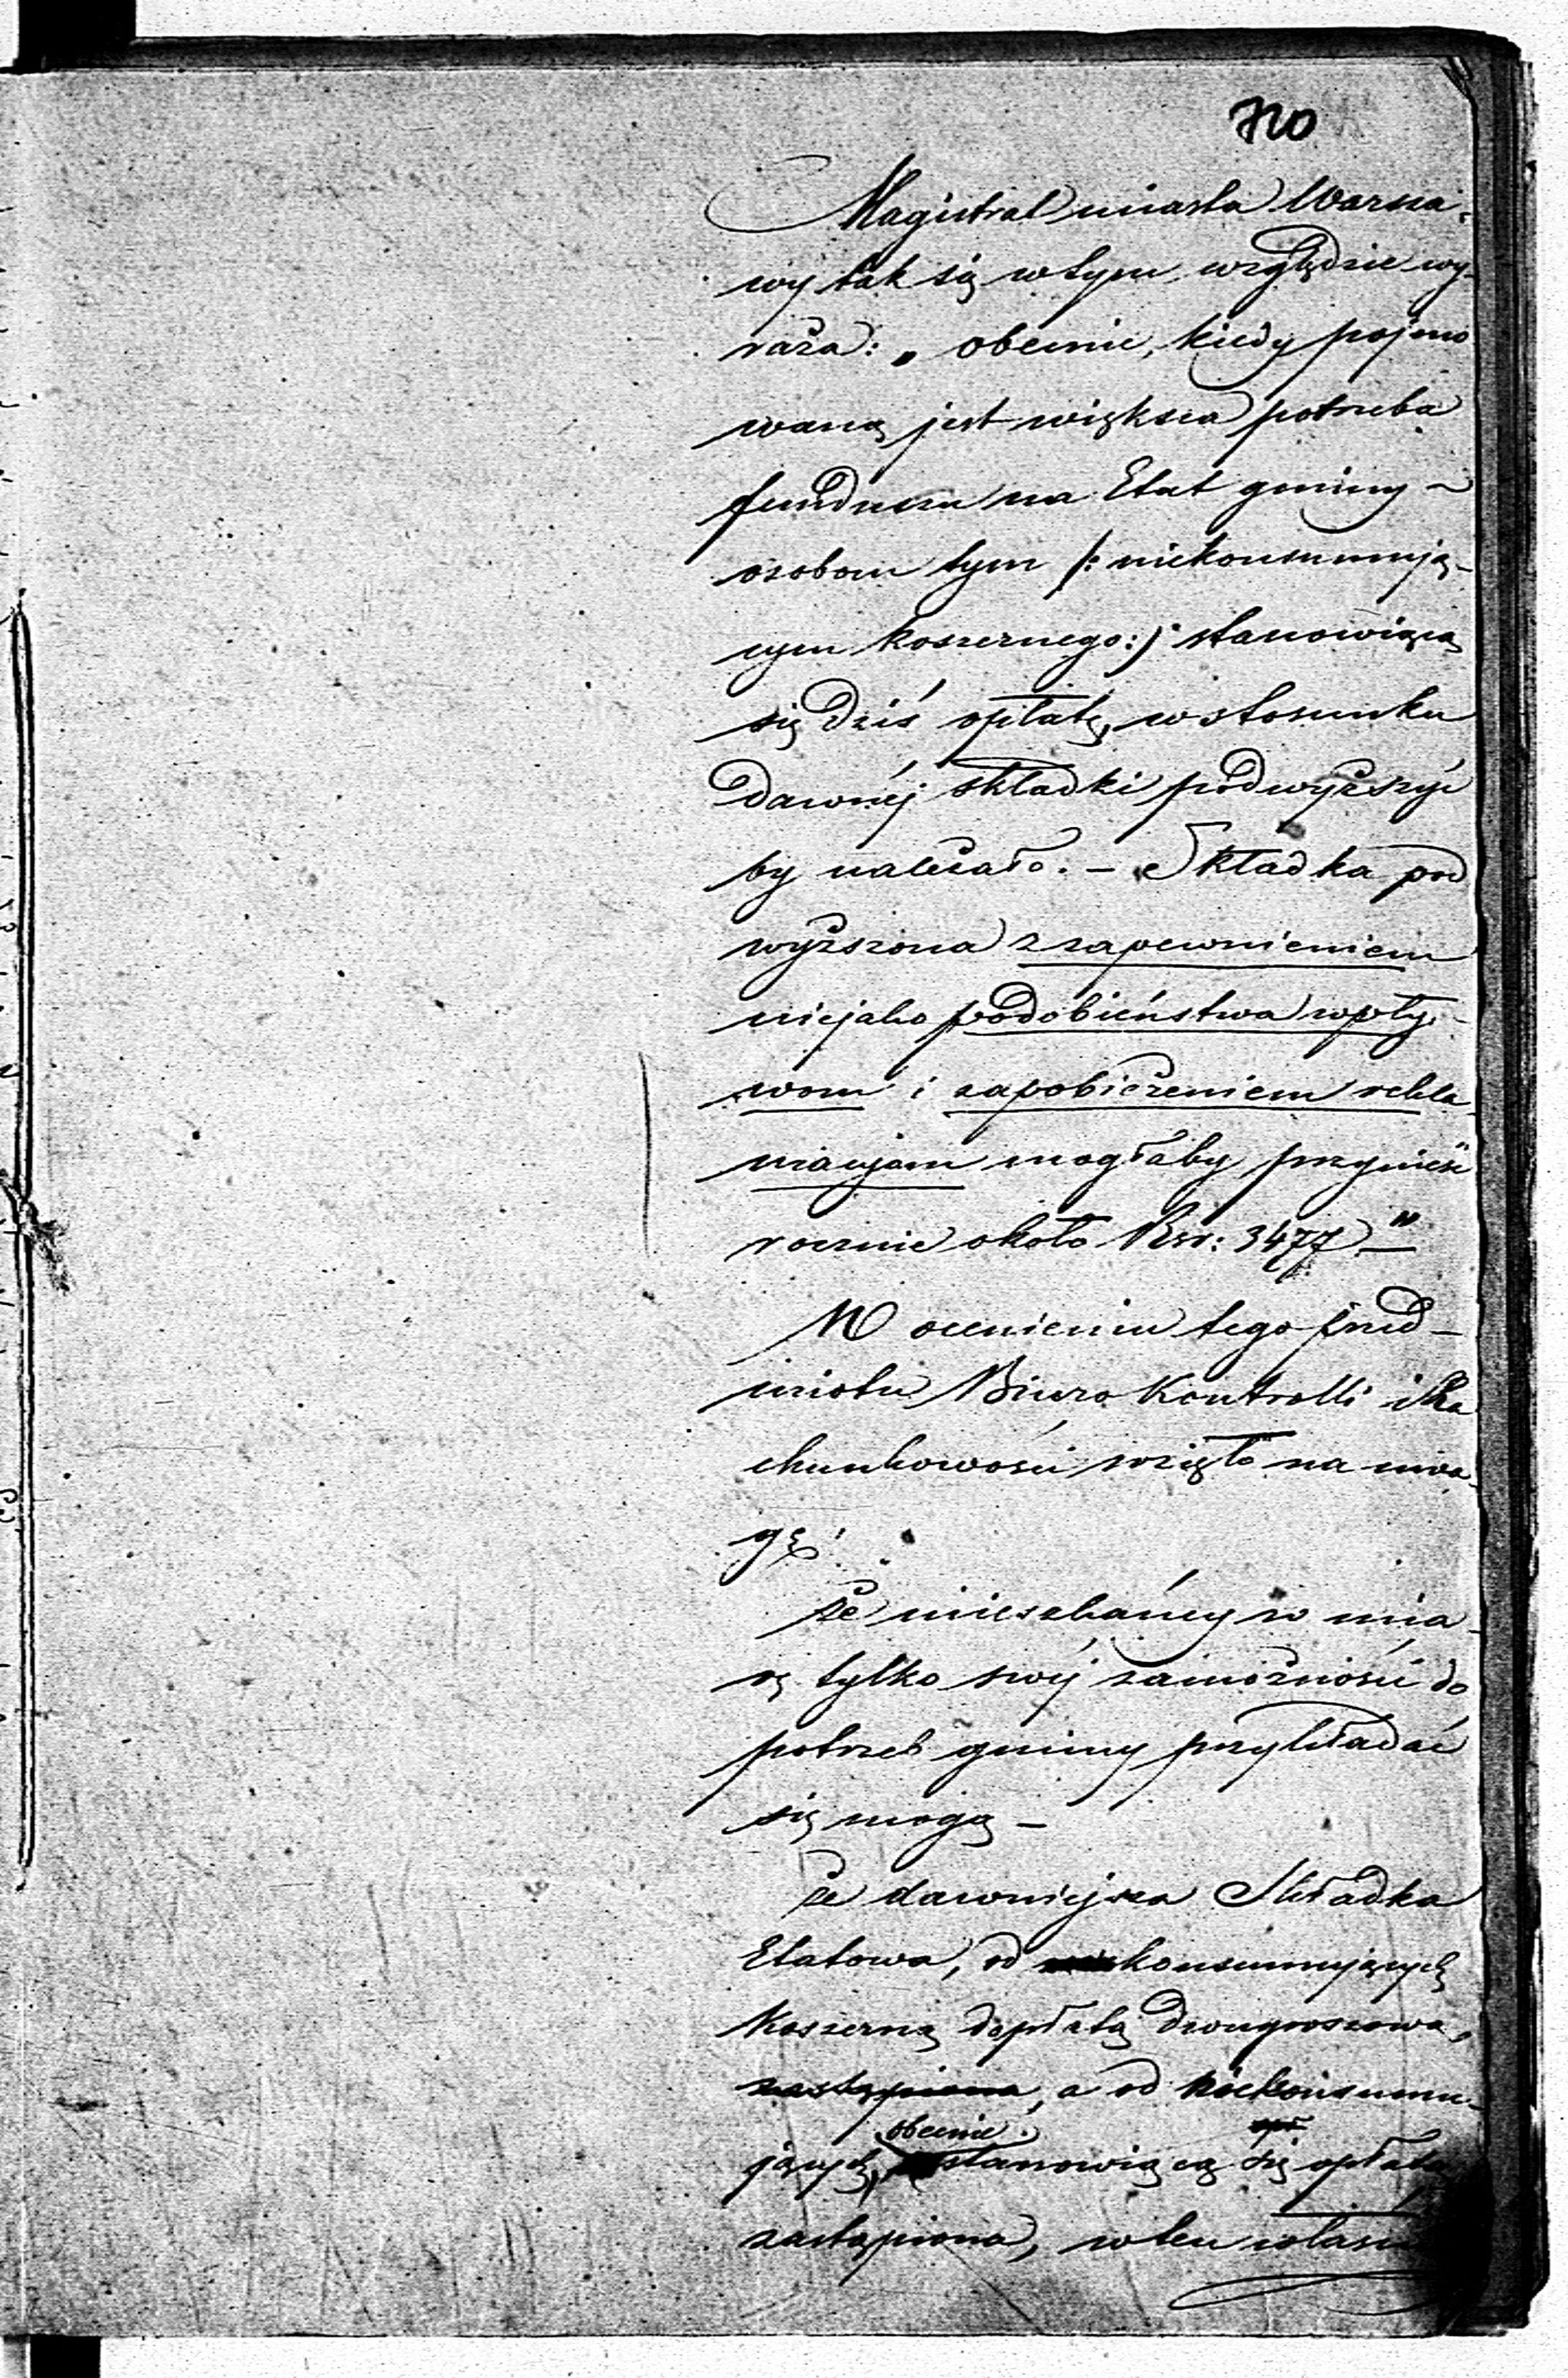 710
Magistrat miasta Warsza-
wy tak się w tym względzie wy-
raża: „ obecnie, kiedy pojmo
waną jest większa potrzeba
funduszu na Etat gminy –
osobom tym /: niekonsumują-
cym koszernego :/ stanowiącą
się dziś opłatę, w stosunku
dawnéj składki podwyższyć
by należało. – Składka pod
wyższona z zapewnieniem
niejako podobieństwa wpły-
wom i zapobieżeniem rekla-
macyjom mogłaby przynieść
rocznie około Rsr: 3477 – "
W ocenieniu tego przed-
miotu Biuro Kontrolli i Ra
chunkowości wzięło na uwa-
gę:
że mieszkańcy w mia-
rę tylko swéj zamożności do
potrzeb gminy przykładać
się mogą –
że dawniejsza Składka
Etatowa, od konsumujących
Koszerną dopłatą dwugroszową,
zastąpiona, a od niekonsumu-
obecnie
jących, stanowiącą się opłatą
zastąpiona, w ten